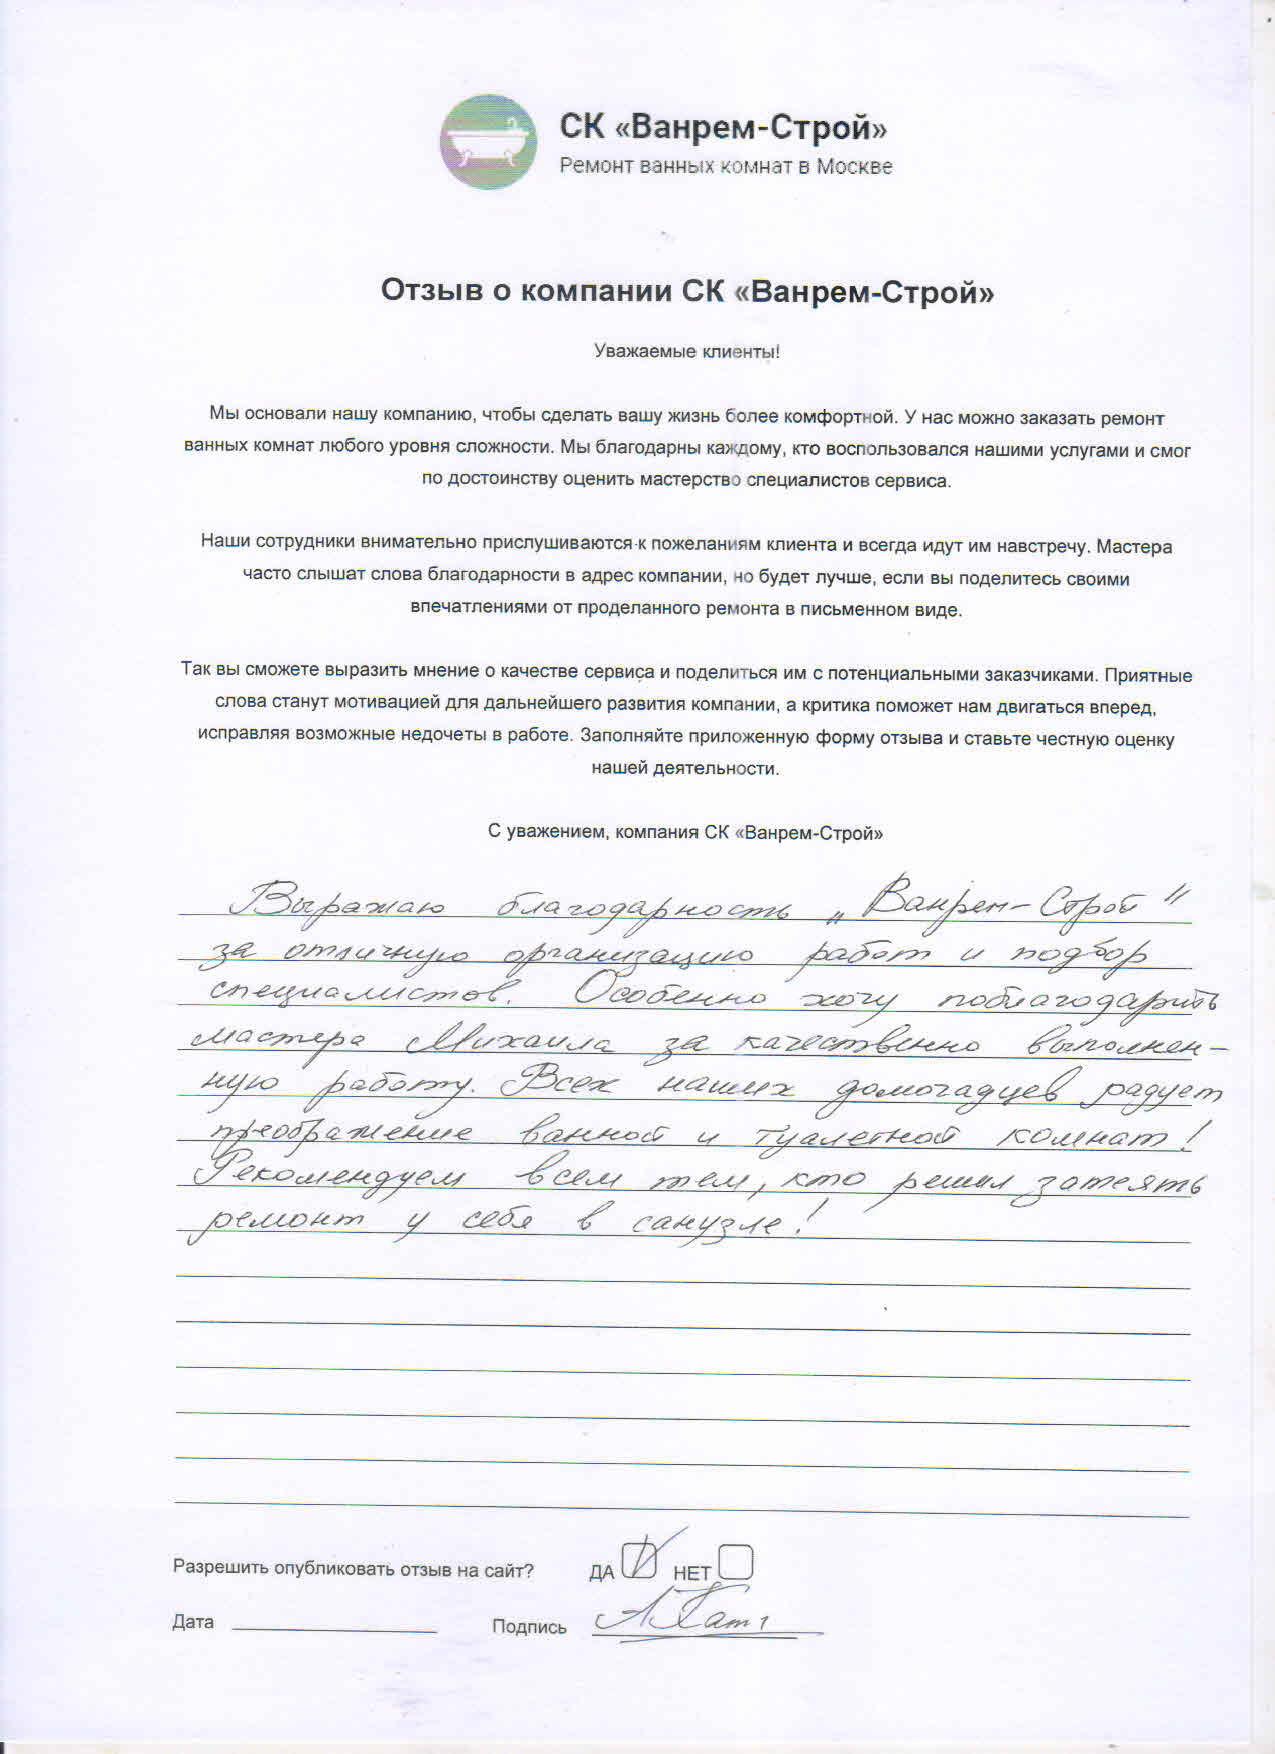 СК «Ванрем-Строй»
Ремонт ванных комнат в Москве
Отзыв о компании СК «Ванрем-Строй»
Уважаемые клиенты!
Мы основали нашу компанию, чтобы сделать вашу жизнь более комфортной. У нас можно заказать ремонт
ванных комнат любого уровня сложности. Мы благодарны каждому, кто воспользовался нашими услугами и смог
по достоинству оценить мастерство специалистов сервиса.
Наши сотрудники внимательно прислушиваются к пожеланиям клиента и всегда идут им навстречу. Мастера
часто слышат слова благодарности в адрес компании, но будет лучше, если вы поделитесь своими
впечатлениями от проделанного ремонта в письменном виде.
Так вы сможете выразить мнение о качестве сервиса и поделиться им с потенциальными заказчиками. Приятные
слова станут мотивацией для дальнейшего развития компании, а критика поможет нам двигаться вперед,
исправляя возможные недочеты в работе. Заполняйте приложенную форму отзыва и ставьте честную оценку
нашей деятельности.
С уважением, компания СК «Ванрем-Строй»
Выражаю благодарность „Ванрем-Строй"
за отличную организацию работ и подбор
специалистов. Особенно хочу поблагодарить
мастера Михаила за качественно выполнен-
ную работу. Всех наших домочадцев радует
преображение ванной и туалетной комнат!
Рекомендуем всем тем, кто решил затеять
ремонт у себя в санузле!
Разрешить опубликовать отзыв на сайт? ДА НЕТ
Дата Подпись